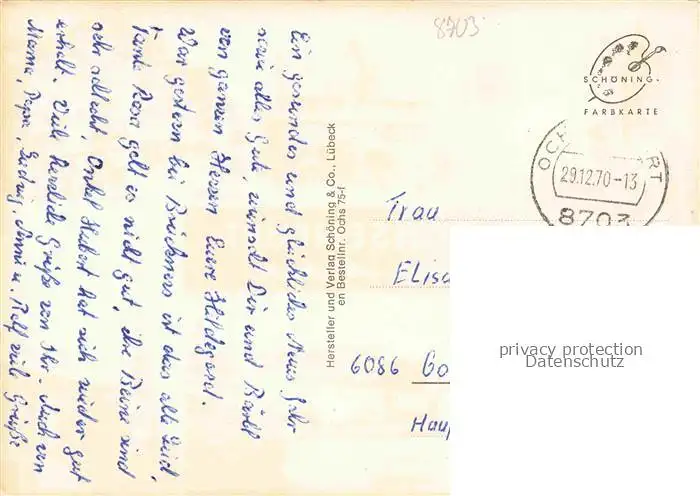 8703
SCHÖNING
FARBKARTE
OCH RT
29.12.70-13
8703
Ein gesundes und glückliches Neues Jahr
sowie alles Gute, wünscht Dir und Bärbl
von ganzen Herzen Euere Hildegard.
War gestern bei Brückners ist das alte Leid,
Tante Rosa geht es nicht gut, ihre Beine sind
sehr schlecht, Onkel Hubert hat sich wieder gut
erholt. Viele herzliche Grüße von Ihr. Auch von
Mama, Papa, Ludwig, Anni u. Ralf viele Grüße
Hersteller und Verlag Schöning & Co., Lübeck
en Bestellnr. Ochs 75-f
Frau
Elisa
6086
Haup
privacy protection
Datenschutz